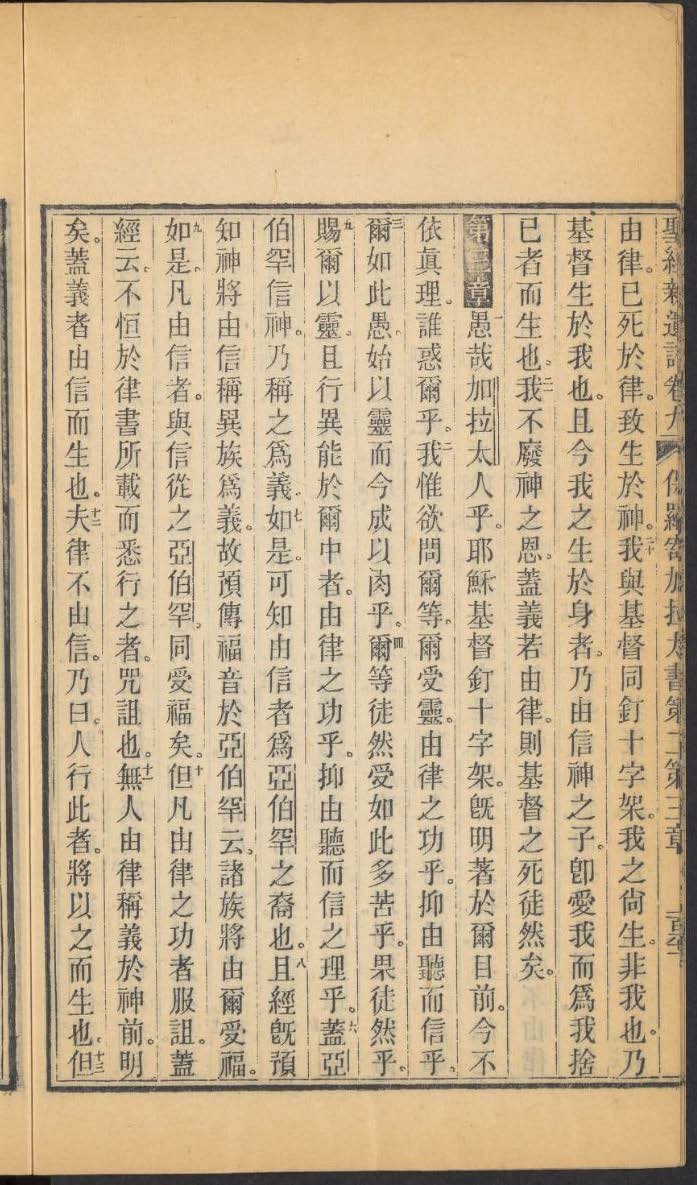 聖經新遺詔卷九 保羅寄加拉太書第二第三章
由律。已死於律。致生於神。二十我與基督同釘十字架。我之尙生。非我也。乃
基督生於我也。且今我之生於身者。乃由信神之子。卽愛我而爲我捨
已者而生也。二一我不廢神之恩。蓋義若由律。則基督之死徒然矣。
第三章 一愚哉加拉太人乎。耶穌基督釘十字架。旣明著於爾目前。今不
依眞理。誰惑爾乎。二我惟欲問爾等。爾受靈。由律之功乎。抑由聽而信乎。
三爾如此愚。始以靈而今成以肉乎。四爾等徒然受如此多苦乎。果徒然乎。
五賜爾以靈。且行異能於爾中者。由律之功乎。抑由聽而信之理乎。六蓋亞
伯罕信神。乃稱之爲義。七如是。可知由信者爲亞伯罕之裔也。八且經旣預
知神將由信稱異族爲義。故預傳福音於亞伯罕云。諸族將由爾受福。
九如是。凡由信者。與信從之亞伯罕。同受福矣。十但凡由律之功者服詛。蓋
經云。不恒於律書所載而悉行之者。咒詛也。十一無人由律稱義於神前。明
矣。蓋義者由信而生也。十二夫律不由信。乃曰。人行此者。將以之而生也。十三但